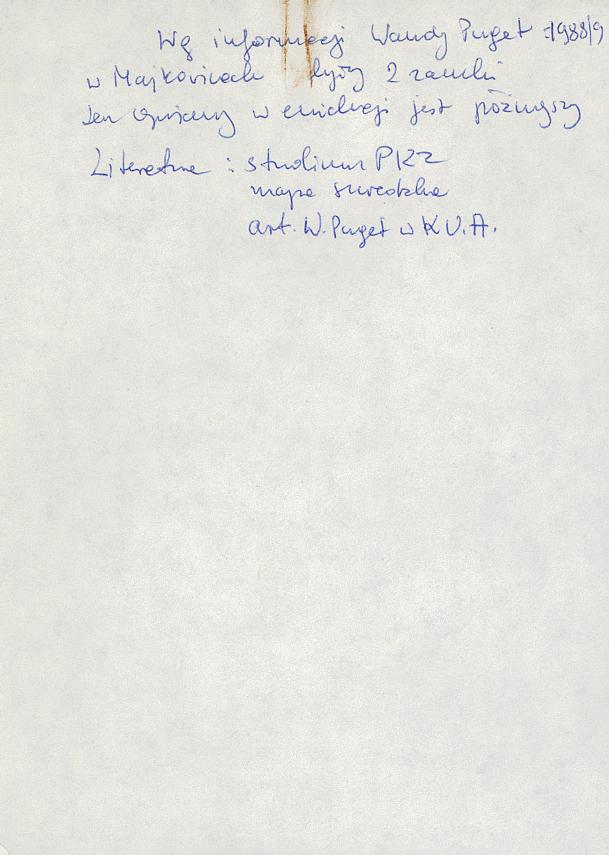 Wg informacji Wandy Puget -1988/9
w Majkowicach były 2 zamki
Ten opisany w ewidencji jest późniejszy
Literatura : studium PKZ
mapa szwedzka
art. W. Puget w K.U.A.